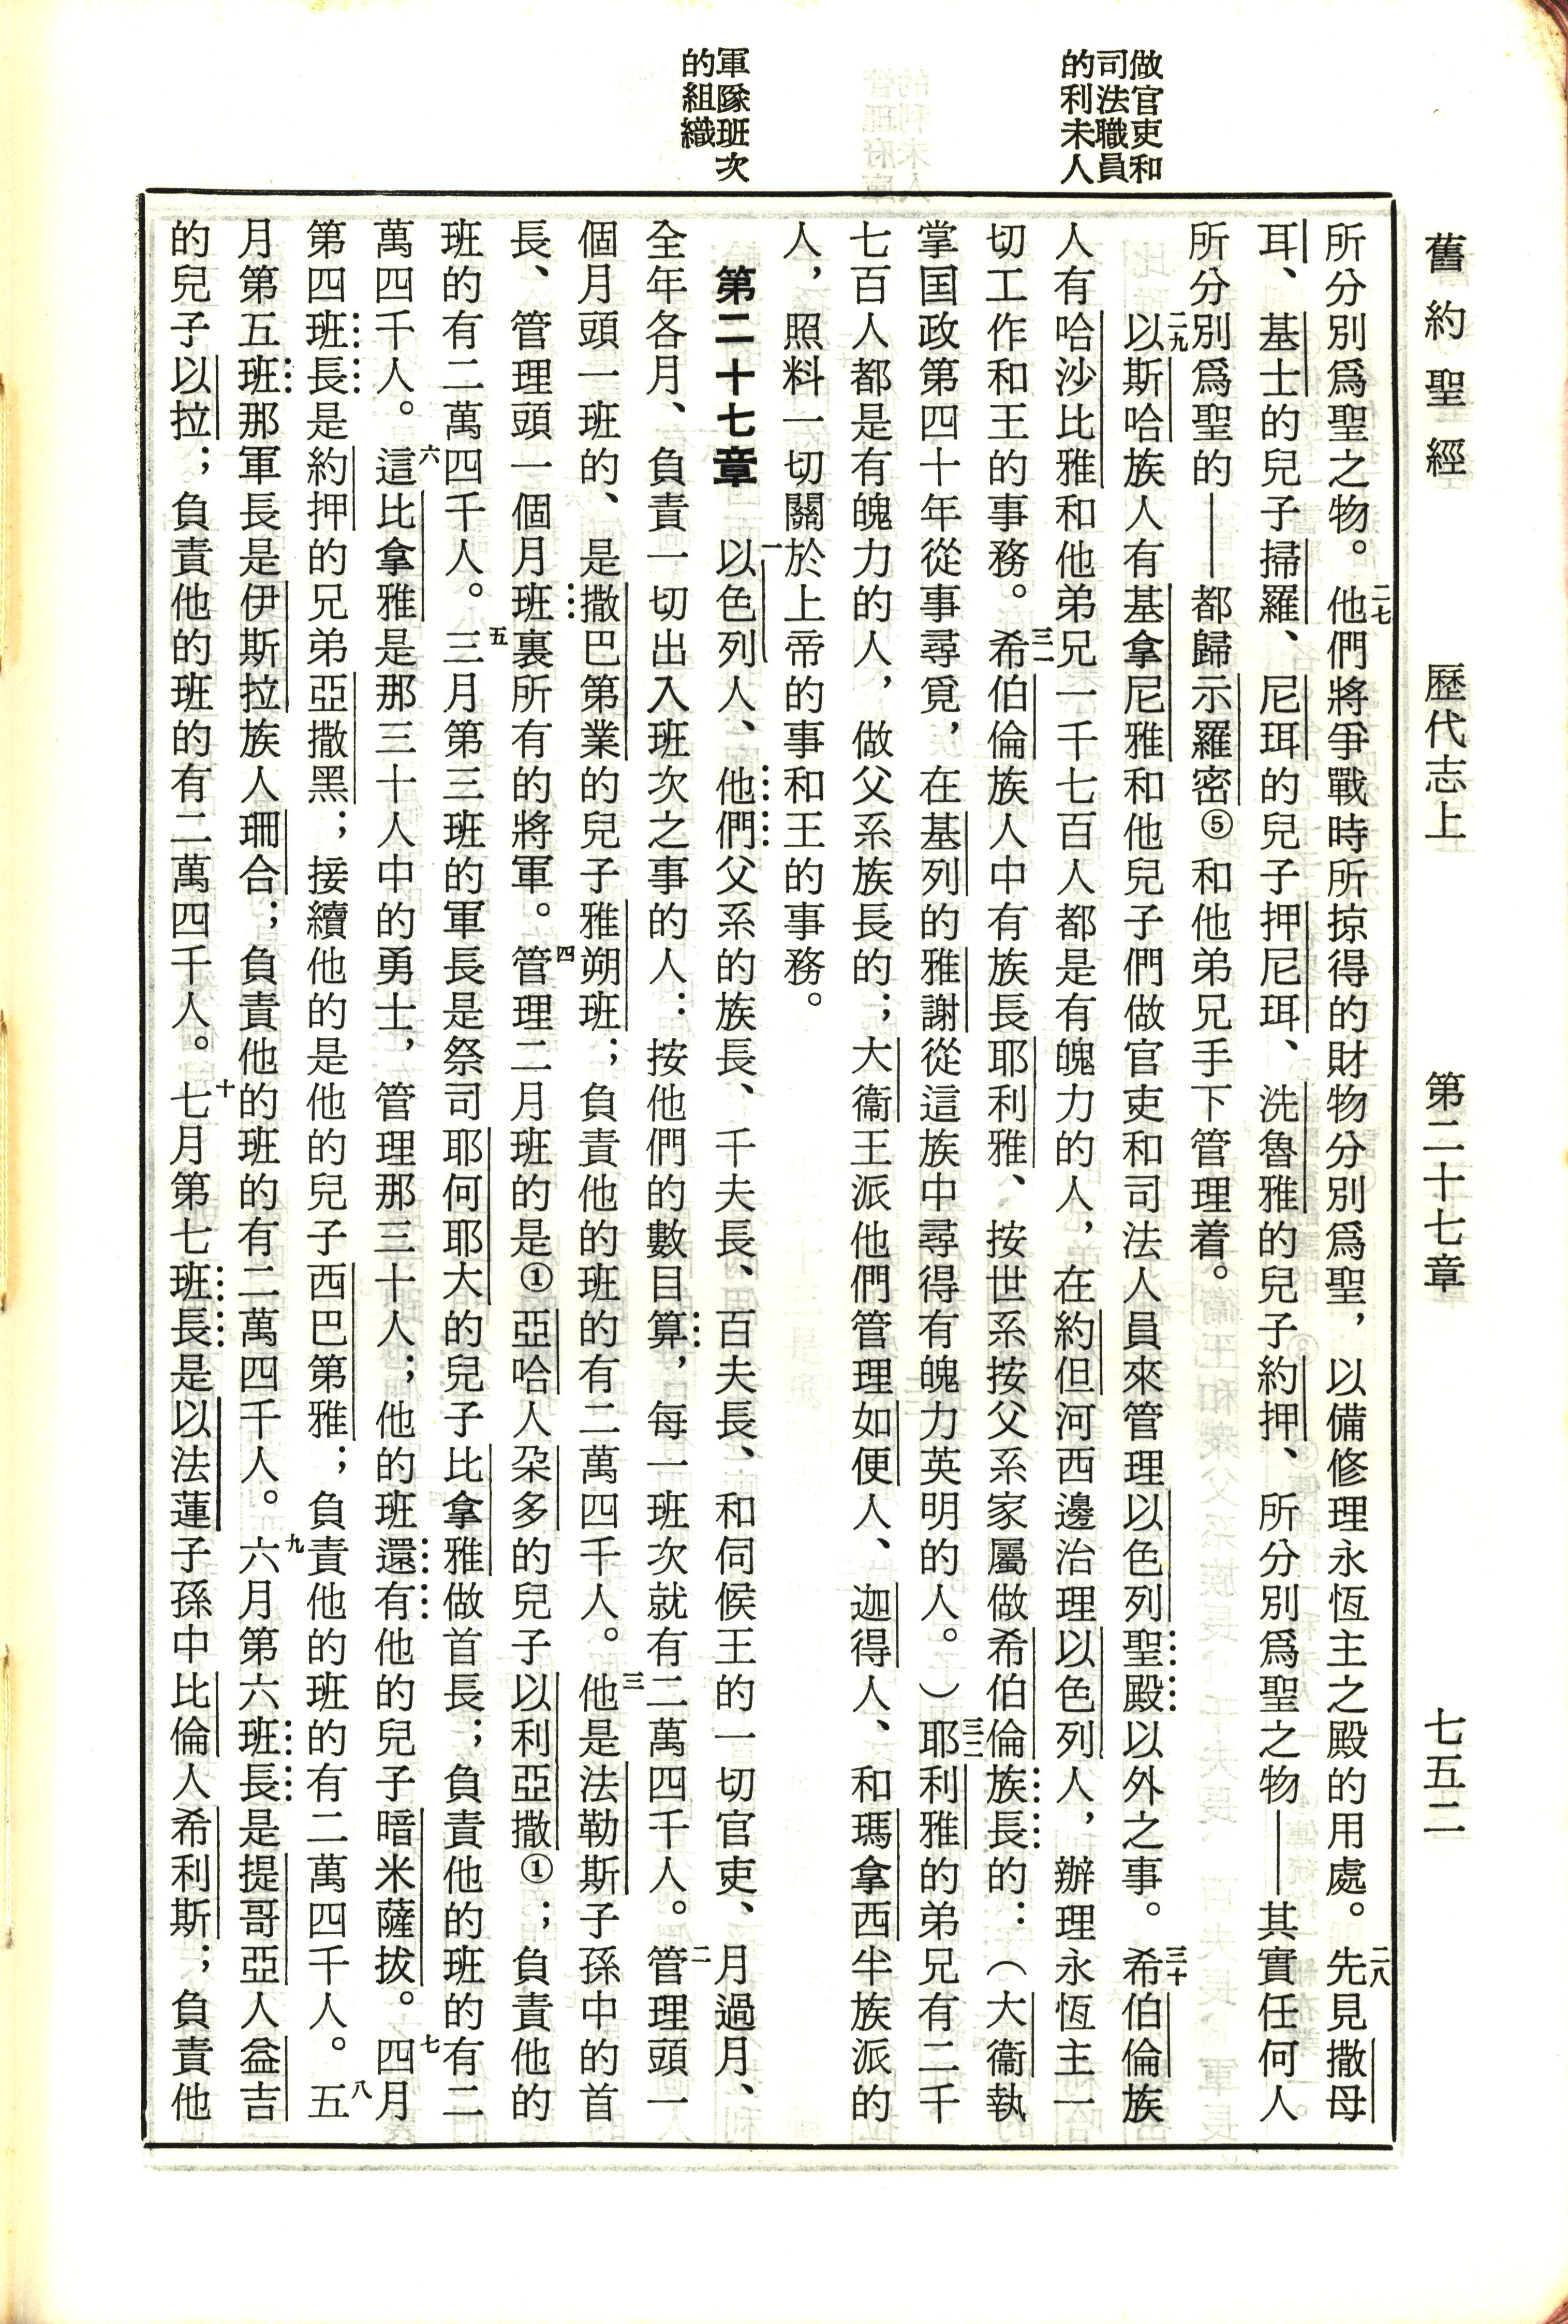 舊約聖經　歷代志上　第二十七章　七五二
做官吏和
司法職員
的利未人
軍隊班次
的組織
所分別爲聖之物。二七他們將爭戰時所掠得的財物分別爲聖，以備修理永恆主之殿的用處。二八先見撒母
耳、基士的兒子掃羅、尼珥的兒子押尼珥、洗魯雅的兒子約押、所分別爲聖之物——其實任何人
所分別爲聖的——都歸示羅密⑤和他弟兄手下管理着。
二九以斯哈族人有基拿尼雅和他兒子們做官吏和司法人員來管理以色列聖殿以外之事。三十希伯倫族
人有哈沙比雅和他弟兄一千七百人都是有魄力的人，在約但河西邊治理以色列人，辦理永恆主一
切工作和王的事務。三一希伯倫族人中有族長耶利雅、按世系按父系家屬做希伯倫族長的：（大衞執
掌国政第四十年從事尋覓，在基列的雅謝從這族中尋得有魄力英明的人。）三二耶利雅的弟兄有二千
七百人都是有魄力的人，做父系族長的；大衞王派他們管理如便人、迦得人、和瑪拿西半族派的
人，照料一切關於上帝的事和王的事務。
第二十七章　一以色列人、他們父系的族長、千夫長、百夫長、和伺候王的一切官吏、月過月、
全年各月、負責一切出入班次之事的人：按他們的數目算，每一班次就有二萬四千人。二管理頭一
個月頭一班的、是撒巴第業的兒子雅朔班；負責他的班的有二萬四千人。三他是法勒斯子孫中的首
長、管理頭一個月班裏所有的將軍。四管理二月班的是①亞哈人朶多的兒子以利亞撒①；負責他的
班的有二萬四千人。五三月第三班的軍長是祭司耶何耶大的兒子比拿雅做首長；負責他的班的有二
萬四千人。六這比拿雅是那三十人中的勇士，管理那三十人；他的班還有他的兒子暗米薩拔。七四月
第四班長是約押的兄弟亞撒黑；接續他的是他的兒子西巴第雅；負責他的班的有二萬四千人。八五
月第五班那軍長是伊斯拉族人珊合；負責他的班的有二萬四千人。九六月第六班長是提哥亞人益吉
的兒子以拉；負責他的班的有二萬四千人。十七月第七班長是以法蓮子孫中比倫人希利斯；負責他